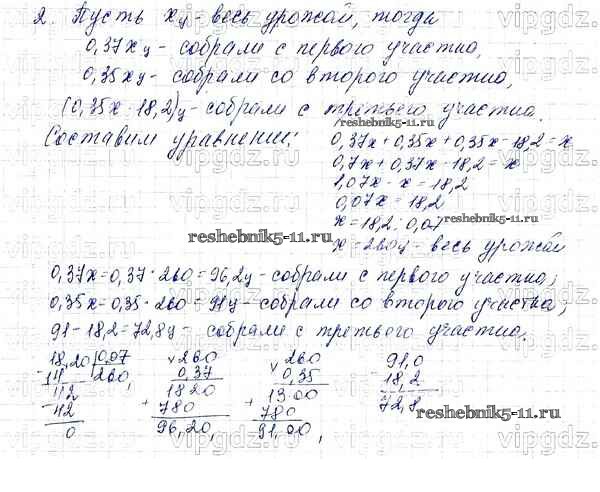 2. Пусть х ц - весь урожай, тогда
0,37х ц - собрали с первого участка,
0,35х ц - собрали со второго участка,
(0,35х - 18,2) ц - собрали с третьего участка.
Составим уравнение:
0,37х + 0,35х + 0,35х - 18,2 = х
0,7х + 0,37х - 18,2 = х
1,07х - х = 18,2
0,07х = 18,2
х = 18,2 : 0,07
х = 260 ц - весь урожай
0,37х = 0,37 · 260 = 96,2 ц - собрали с первого участка;
0,35х = 0,35 · 260 = 91 ц - собрали со второго участка;
91 - 18,2 = 72,8 ц - собрали с третьего участка.
18,20 0,07
14 260,
42
42
0
× 260
0,37
1820
+ 780
96,20,
× 260
0,35
1300
+ 780
91,00,
91,0
- 18,2
72,8
reshebnik5-11.ru
reshebnik5-11.ru
reshebnik5-11.ru
reshebnik5-11.ru
vipgdz.